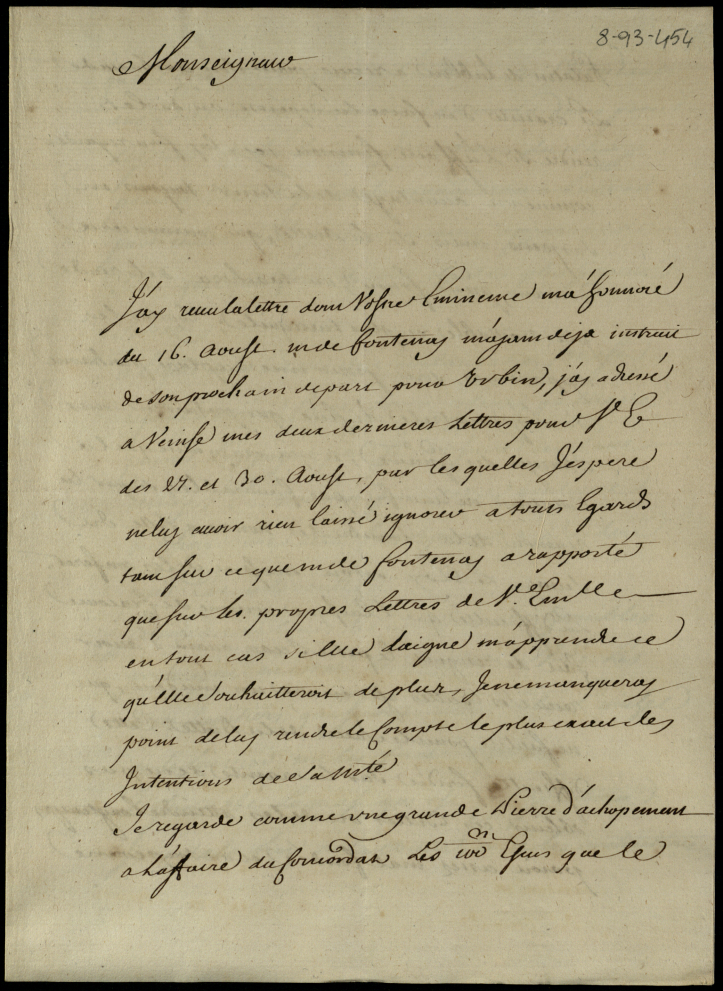 8-93-454
Monseigneur
J'ay receu la lettre dont Vostre Eminence m'a honnoré
du 16. Aoust. m de fontenay m'ayant deja instruit
de son prochain depart pour Urbin, j'ay adressé
a Venise mes deux dernieres Lettres pour V.e E
des 27. et 30. Aoust, par lesquelles J'espere
ne luy avoir rien laissé ignorer a touts Egards
tant sur ce que m de fontenay a rapporté
que sur les propres Lettres de V.e Em.ce
en tout cas si Elle daigne m'apprendre ce
qu'Elle souhaitteroit de plus, Je ne manqueray
point de luy rendre le Compte le plus exact des
Intentions de sa
Je regarde comme une grande Pierre d'achopement
a l'affaire du Concordat Les Ecus que le